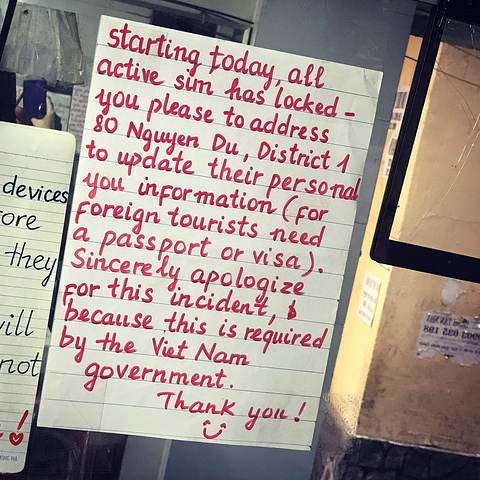 starting today, all
active sim has locked -
you please to address
80 Nguyen Du, District 1
to update their personal
you information (for
foreign tourists need
a passport or visa).
Sincerely apologize
for this incident,
because this is required
by the Viet Nam
government.
Thank you!
devices
ore
they
vill
not
!